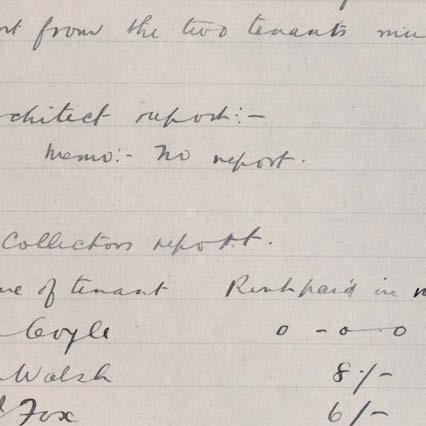 from the two tenants
chitect report:-
Memo:- No report.
Collectors report.
me of tenant Rent paid in
Coyle 0-0-0
Walsh 8/-
Fox 6/-